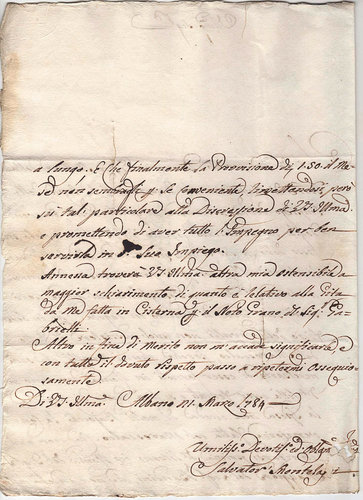 a lungo. E che finalmente la Provisione di 1.50. il Me-
se non sembra conveniente, rimettendosi però
su tal particolare alla Discrezione di V.S. Illma
e promettendo di aver tutto l'Impegno per ben
servirla in d.o Suo Impiego.
Annessa troverà V.S. Illma altra mia ostensibile a
maggior schiarimento di quanto è relativo alla Gita
da me fatta in Cisterna p. il Noto Grano di Sig.
Altro in fine di merito non m'accade significarle, e
con tutto il dovuto rispetto passo a ripetermi Ossequio-
samente
Di V.S. Illma. Albano 21. Marzo 1784
Umiliss.o Devotiss.o ed Obbligmo
Salvatore